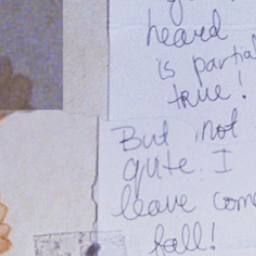 heard
is partial
true!
But not
qute. I
leave come
fall!